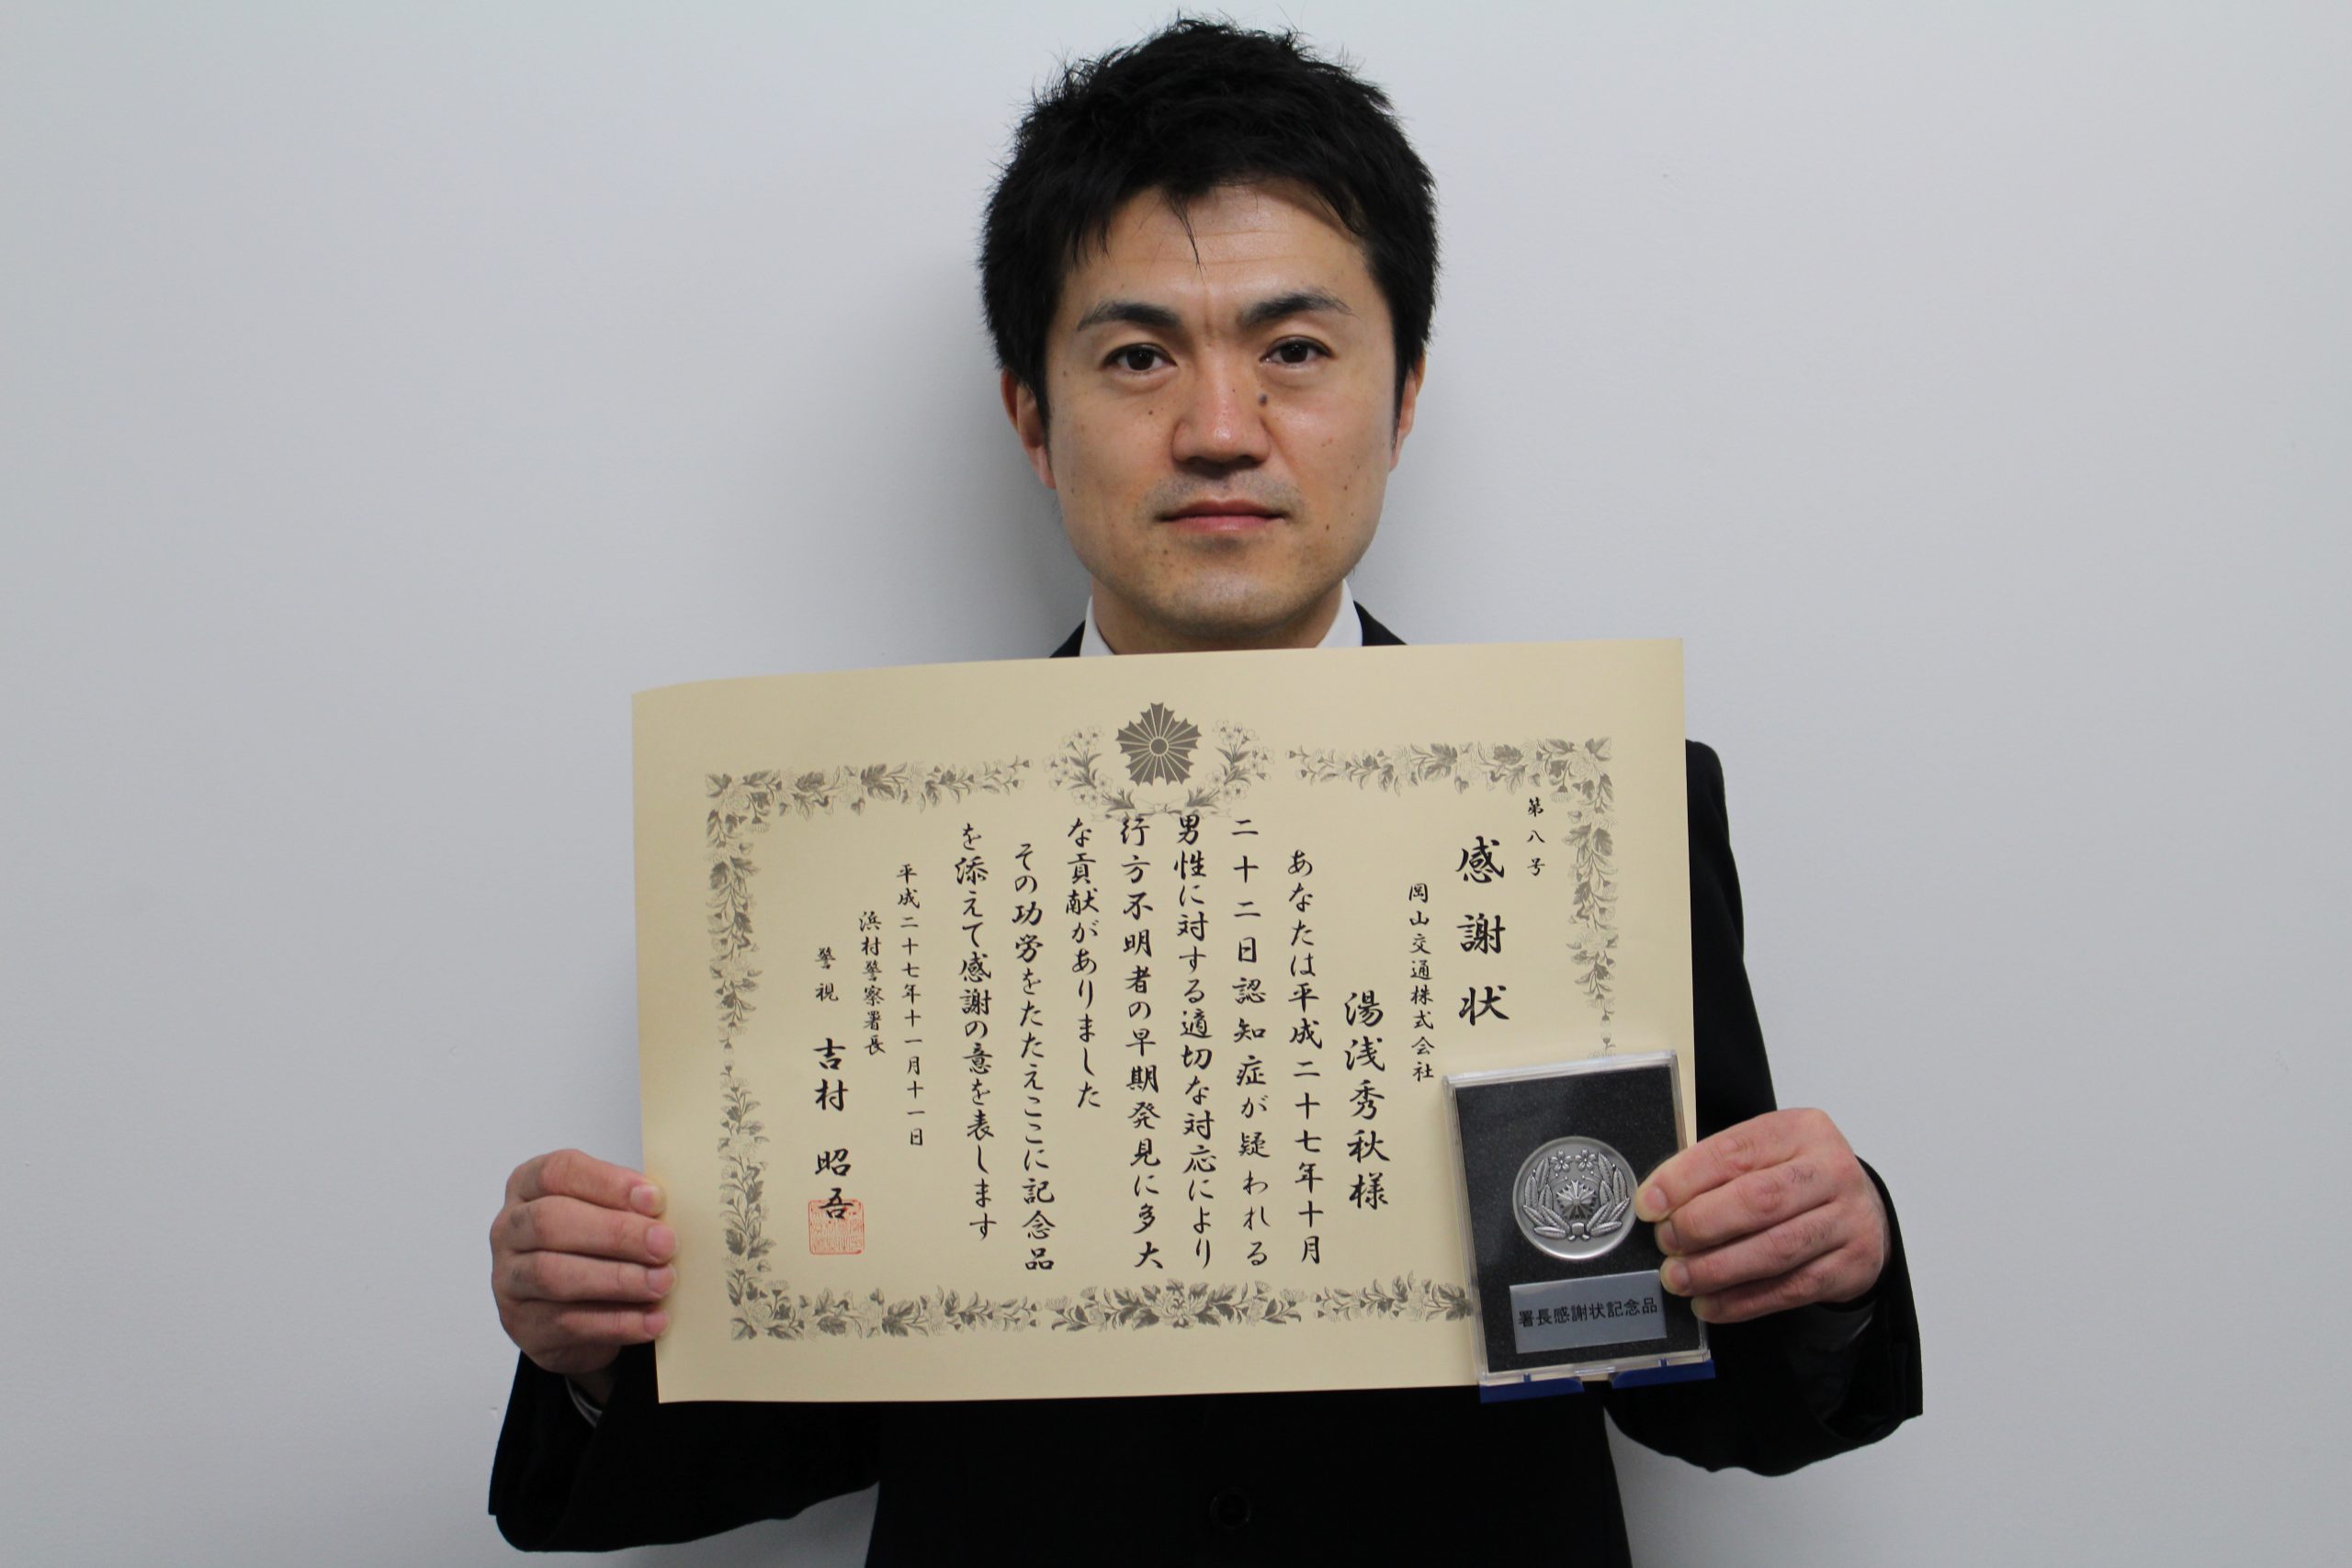 第八号
感謝状
岡山交通株式会社
湯浅秀秋様
あなたは平成二十七年十月
二十二日認知症が疑われる
男性に対する適切な対応により
行方不明者の早期発見に多大
な貢献がありました
その功労をたたえここに記念品
を添えて感謝の意を表します
平成二十七年十一月十一日
浜村警察署長
警視 吉村昭吾
署長感謝状記念品